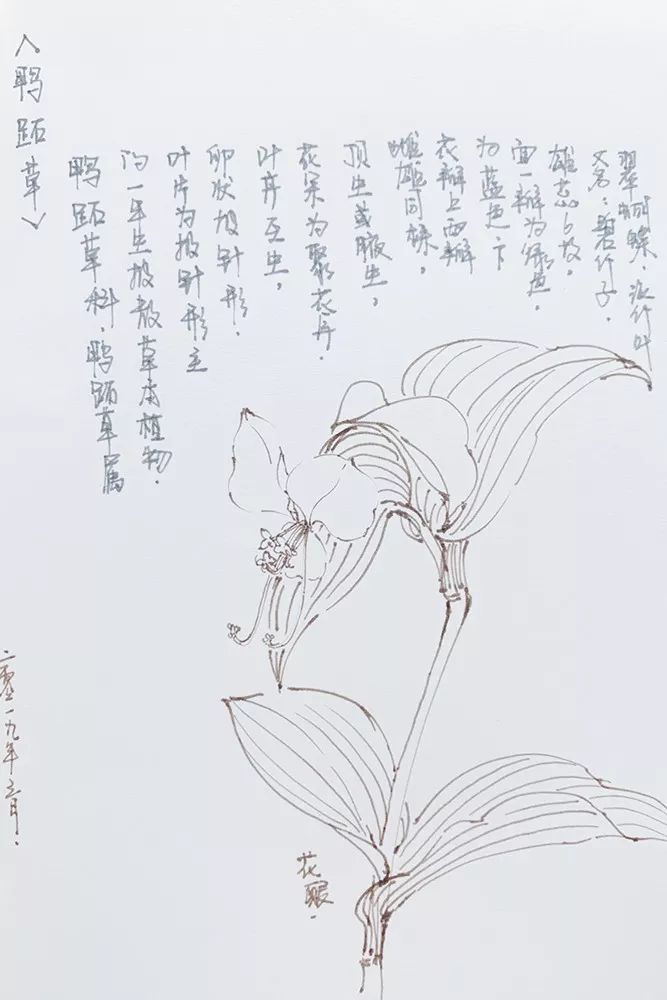 〈鸭跖草〉
鸭跖草科,鸭跖草属
的一年生披散草本植物.
叶片为披针形至
卵状披针形.
叶序互生,
花朵为聚花序.
顶生或腋生,
雌雄同株,
花瓣上两瓣
为蓝色下
面一瓣为绿色,
雄蕊6枚,
又名:碧竹子,
翠蝴蝶、淡竹叶
二零一九年 月.
花